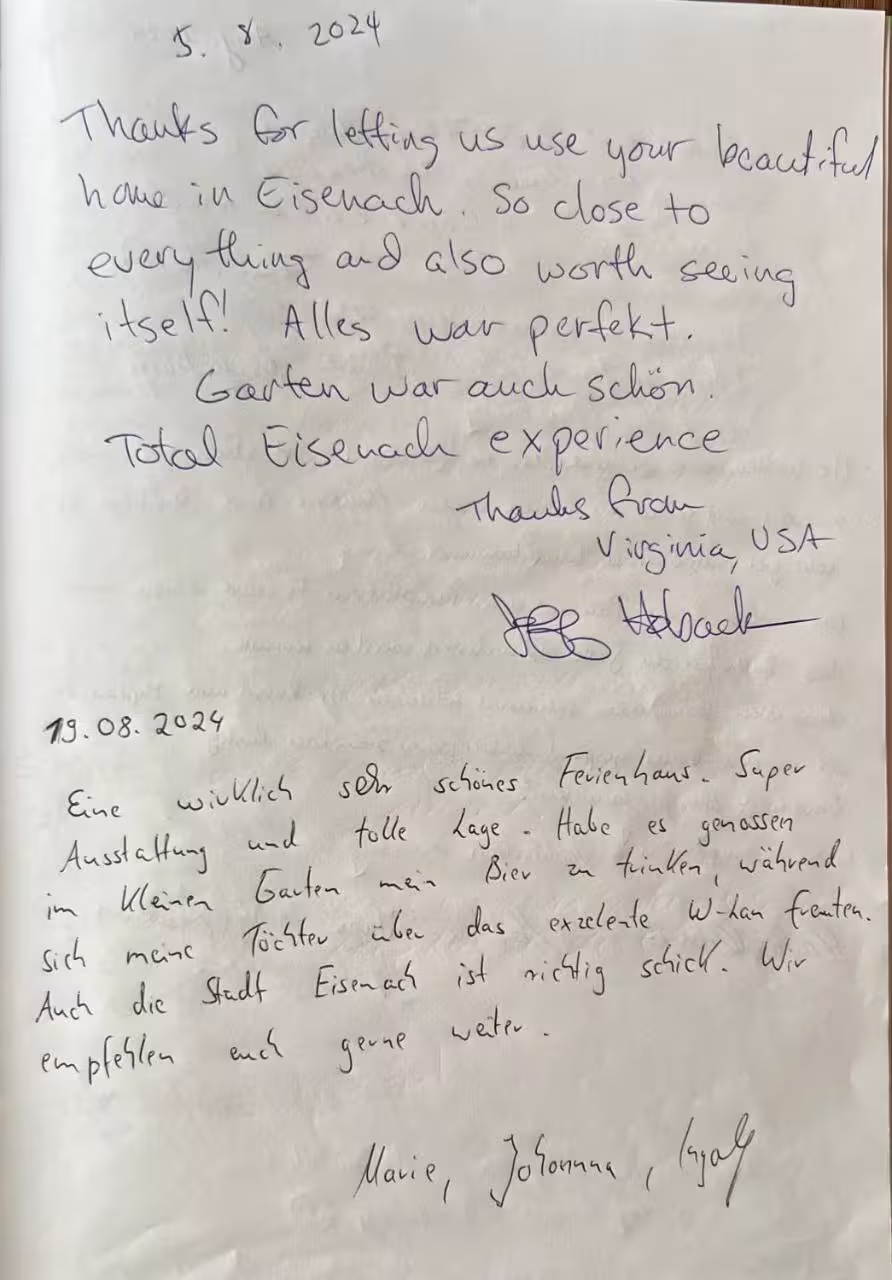 5. 8. 2024
Thanks for letting us use your beautiful
home in Eisenach. So close to
everything and also worth seeing
itself! Alles war perfekt.
Garten war auch schön.
Total Eisenach experience
Thanks from
Virginia, USA
Jeff
19.08.2024
Eine wirklich sehr schönes Ferienhaus. Super
Ausstattung und tolle Lage. Habe es genossen
im kleinen Garten mein Bier zu trinken, während
sich meine Töchter über das exzelente W-Lan freuten.
Auch die Stadt Eisenach ist richtig schick. Wir
empfehlen euch gerne weiter.
Marie, Johanna,